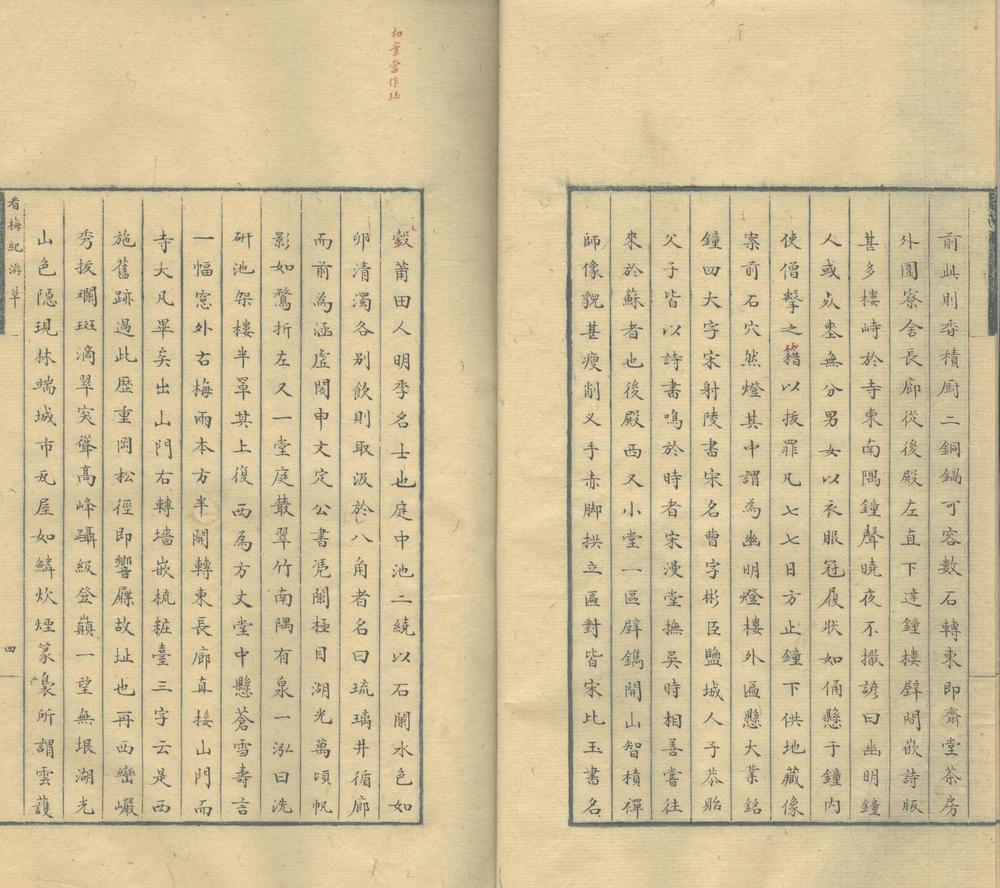 前此則香積厨二銅鍋可容數石轉東即齋堂茶房
外圊寮舍長廊從後殿左直下達鐘樓壁間嵌詩版
甚多樓峙於寺東南隅鐘聲曉夜不撤諺曰幽明鐘
人或灾眚無分男女以衣服冠履狀如俑懸于鐘内
使僧擊之藉以拔罪凡七七日方止鐘下供地藏像
案前石穴然燈其中謂為幽明燈樓外匾懸大業銘
鐘四大字宋射陵書宋名曹字彬臣鹽城人子恭貽
父子皆以詩書鳴於時者宋漫堂撫吳時相善嘗往
來於蘇者也後殿西又小堂一區壁鐫開山智積禪
師像貌甚瘦削叉手赤脚拱立區對皆宋比玉書名
瑴莆田人明季名士也庭中池二繞以石闌水色如
卯清濁各别飲則取汲於八角者名曰琉璃井循廊
而前為涵虛閣申文定公書凭闌極目湖光萬頃帆
影如鶩折左又一堂庭叢翠竹南隅有泉一泓曰洗
研池架樓半罩其上復西為方丈堂中懸蒼雪壽言
一幅窓外古梅兩本方半開轉東長廊直接山門而
寺大凡畢矣出山門右轉墻嵌梳粧臺三字云是西
施舊跡過此歷重岡松徑即響屧故址也再西巒巖
秀拔斕斑滴翠突聳高峰躡級登巔一望無垠湖光
山色隱現林端城市瓦屋如鱗炊煙篆裊所謂雲護
看梅紀游草
四
初案當作珏